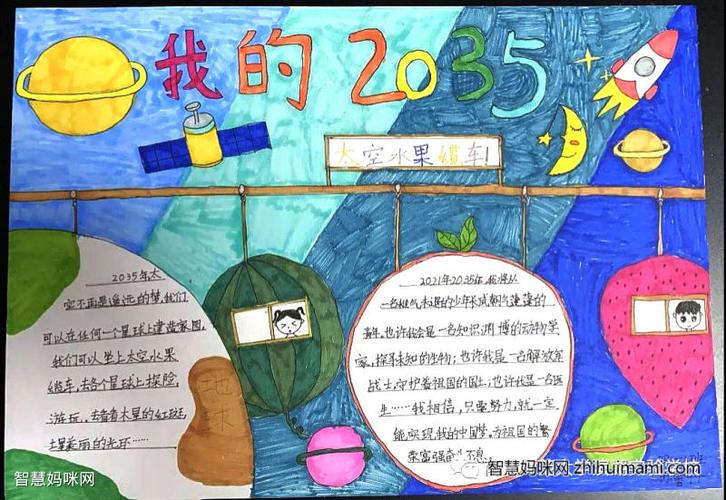 我的2035
太空水果缆车
2035年太
空不再是遥远的梦,我们
可以在任何一个星球上建造家园,
我们可以坐上太空水果
缆车,去各个星球上探险,
游玩。去看看木星的红斑,
土星美丽的光环……
地球
2021年2035年,我将从
一名稚气未退的少年长成朝气蓬蓬的
青年,也许我会是一名知识渊博的动物学
家,探寻未知的生物;也许我是一名解放军
战士,守护着祖国的国土;也许我是一名医
生……我相信,只要努力,就一定
能实现我的中国梦,为祖国的繁
荣富强奋斗不息.
智慧妈咪网
智慧妈咪网 zhihuimami.com